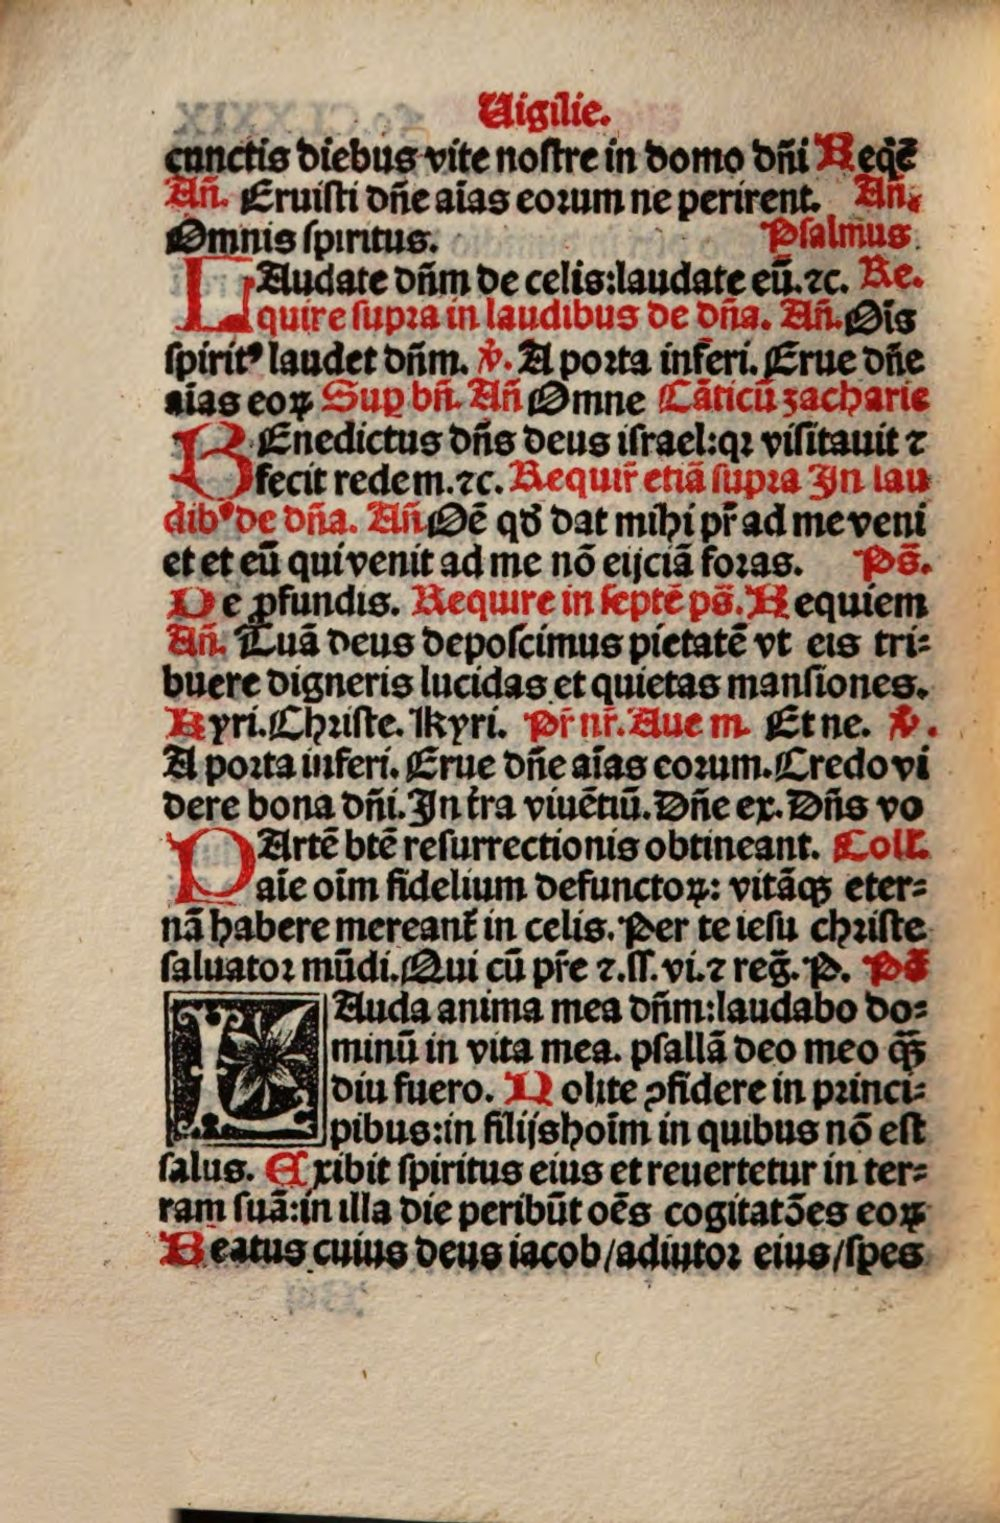 Uigilie.
cunctis diebus vite nostre in domo dñi Reqē
Añ. Eruisti dñe aīas eoꝛum ne perirent. Añ.
Omnis spiritus. Psalmus.
LAudate dñm de celis:laudate eū.⁊c. Re.
quire supꝛa in laudibus de dña. Añ. Oīs
spiritꝰ laudet dñm. ℣. A poꝛta inferi. Erue dñe
aīas eoꝝ Suꝑ bñ. Añ Omne Cāticū zacharie
BEnedictus dñs deus israel:qꝛ visitauit ⁊
fecit redem.⁊c. Requir̃ etiā supꝛa In lau
dibꝰ de dña. Añ Oē qď dat mihi pr̃ ad me veni
et et eū qui venit ad me nō eijciā foꝛas. Ps̄.
De ꝓfundis. Require in septē ps̄. Requiem
Añ. Tuā deus deposcimus pietatē vt eis tri⸗
buere digneris lucidas et quietas mansiones.
Kyri. Chꝛiste. Kyri. Pr̃ nr̃. Aue m. Et ne. ℣.
A poꝛta inferi. Erue dñe aīas eoꝛum. Credo vi
dere bona dñi. In t̃ra viuētiū. Dñe ex. Dñs vo
PArtē btē resurrectionis obtineant. Coll.
aīe oīm fidelium defunctoꝝ: vitāqꝫ eter⸗
nā habere mereant̃ in celis. Per te iesu chꝛiste
saluatoꝛ mūdi. Qui cū pr̃e ⁊.ss. vi.⁊ reg̃. P. Ps̄
LAuda anima mea dñm:laudabo do⸗
minū in vita mea. psallā deo meo qꝫ̄
diu fuero. Nolite ꝯfidere in pꝛinci⸗
pibus:in filijs hoīm in quibus nō est
salus. Exibit spiritus eius et reuertetur in ter⸗
ram suā:in illa die peribūt oēs cogitatōes eoꝝ
Beatus cuius deus iacob/adiutoꝛ eius/spes